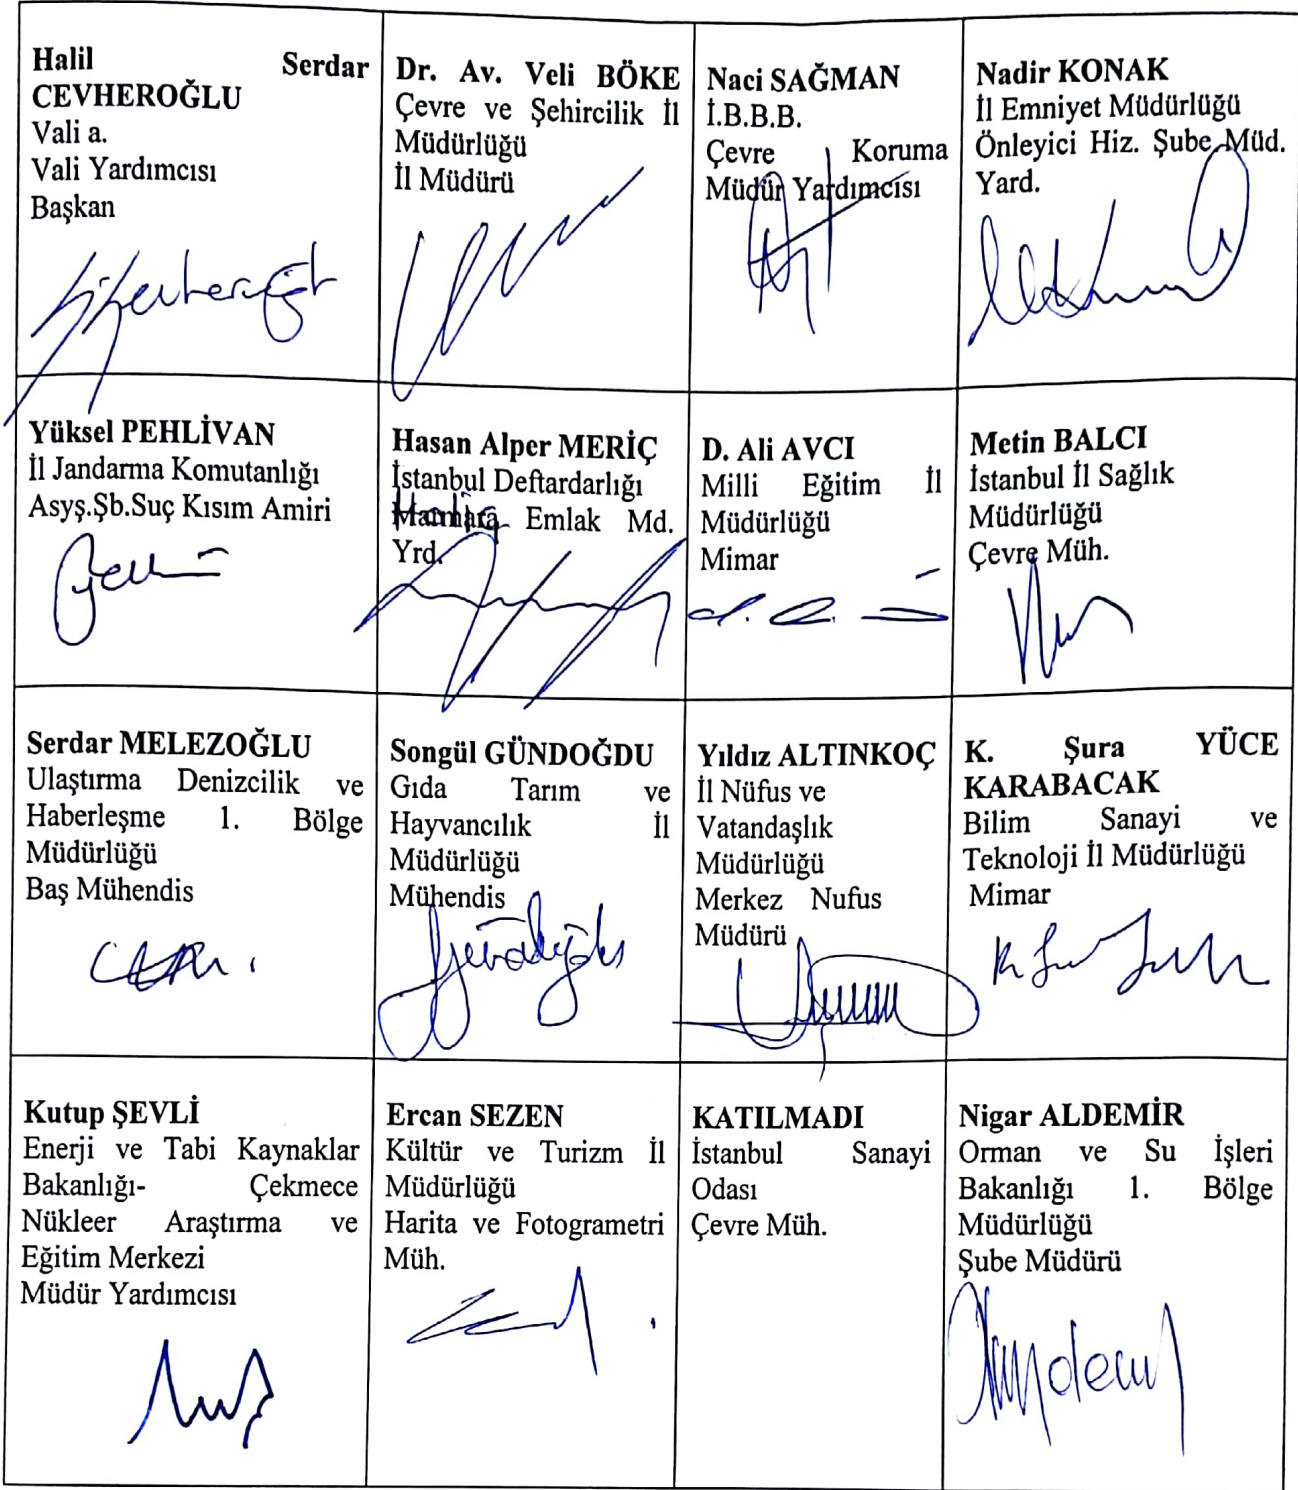 Halil Serdar
CEVHEROĞLU
Vali a.
Vali Yardımcısı
Başkan
Dr. Av. Veli BÖKE
Çevre ve Şehircilik İl
Müdürlüğü
İl Müdürü
Naci SAĞMAN
İ.B.B.B.
Çevre Koruma
Müdür Yardımcısı
Nadir KONAK
İl Emniyet Müdürlüğü
Önleyici Hiz. Şube Müd.
Yard.
Yüksel PEHLİVAN
İl Jandarma Komutanlığı
Asyş.Şb.Suç Kısım Amiri
Hasan Alper MERİÇ
İstanbul Defterdarlığı
Emlak Md.
Yrd.
D. Ali AVCI
Milli Eğitim İl
Müdürlüğü
Mimar
Metin BALCI
İstanbul İl Sağlık
Müdürlüğü
Çevre Müh.
Serdar MELEZOĞLU
Ulaştırma Denizcilik ve
Haberleşme 1. Bölge
Müdürlüğü
Baş Mühendis
Songül GÜNDOĞDU
Gıda Tarım ve
Hayvancılık İl
Müdürlüğü
Mühendis
Yıldız ALTINKOÇ
İl Nüfus ve
Vatandaşlık
Müdürlüğü
Merkez Nufus
Müdürü
K. Şura YÜCE
KARABACAK
Bilim Sanayi ve
Teknoloji İl Müdürlüğü
Mimar
Kutup ŞEVLİ
Enerji ve Tabi Kaynaklar
Bakanlığı- Çekmece
Nükleer Araştırma ve
Eğitim Merkezi
Müdür Yardımcısı
Ercan SEZEN
Kültür ve Turizm İl
Müdürlüğü
Harita ve Fotogrametri
Müh.
KATILMADI
İstanbul Sanayi
Odası
Çevre Müh.
Nigar ALDEMİR
Orman ve Su İşleri
Bakanlığı 1. Bölge
Müdürlüğü
Şube Müdürü